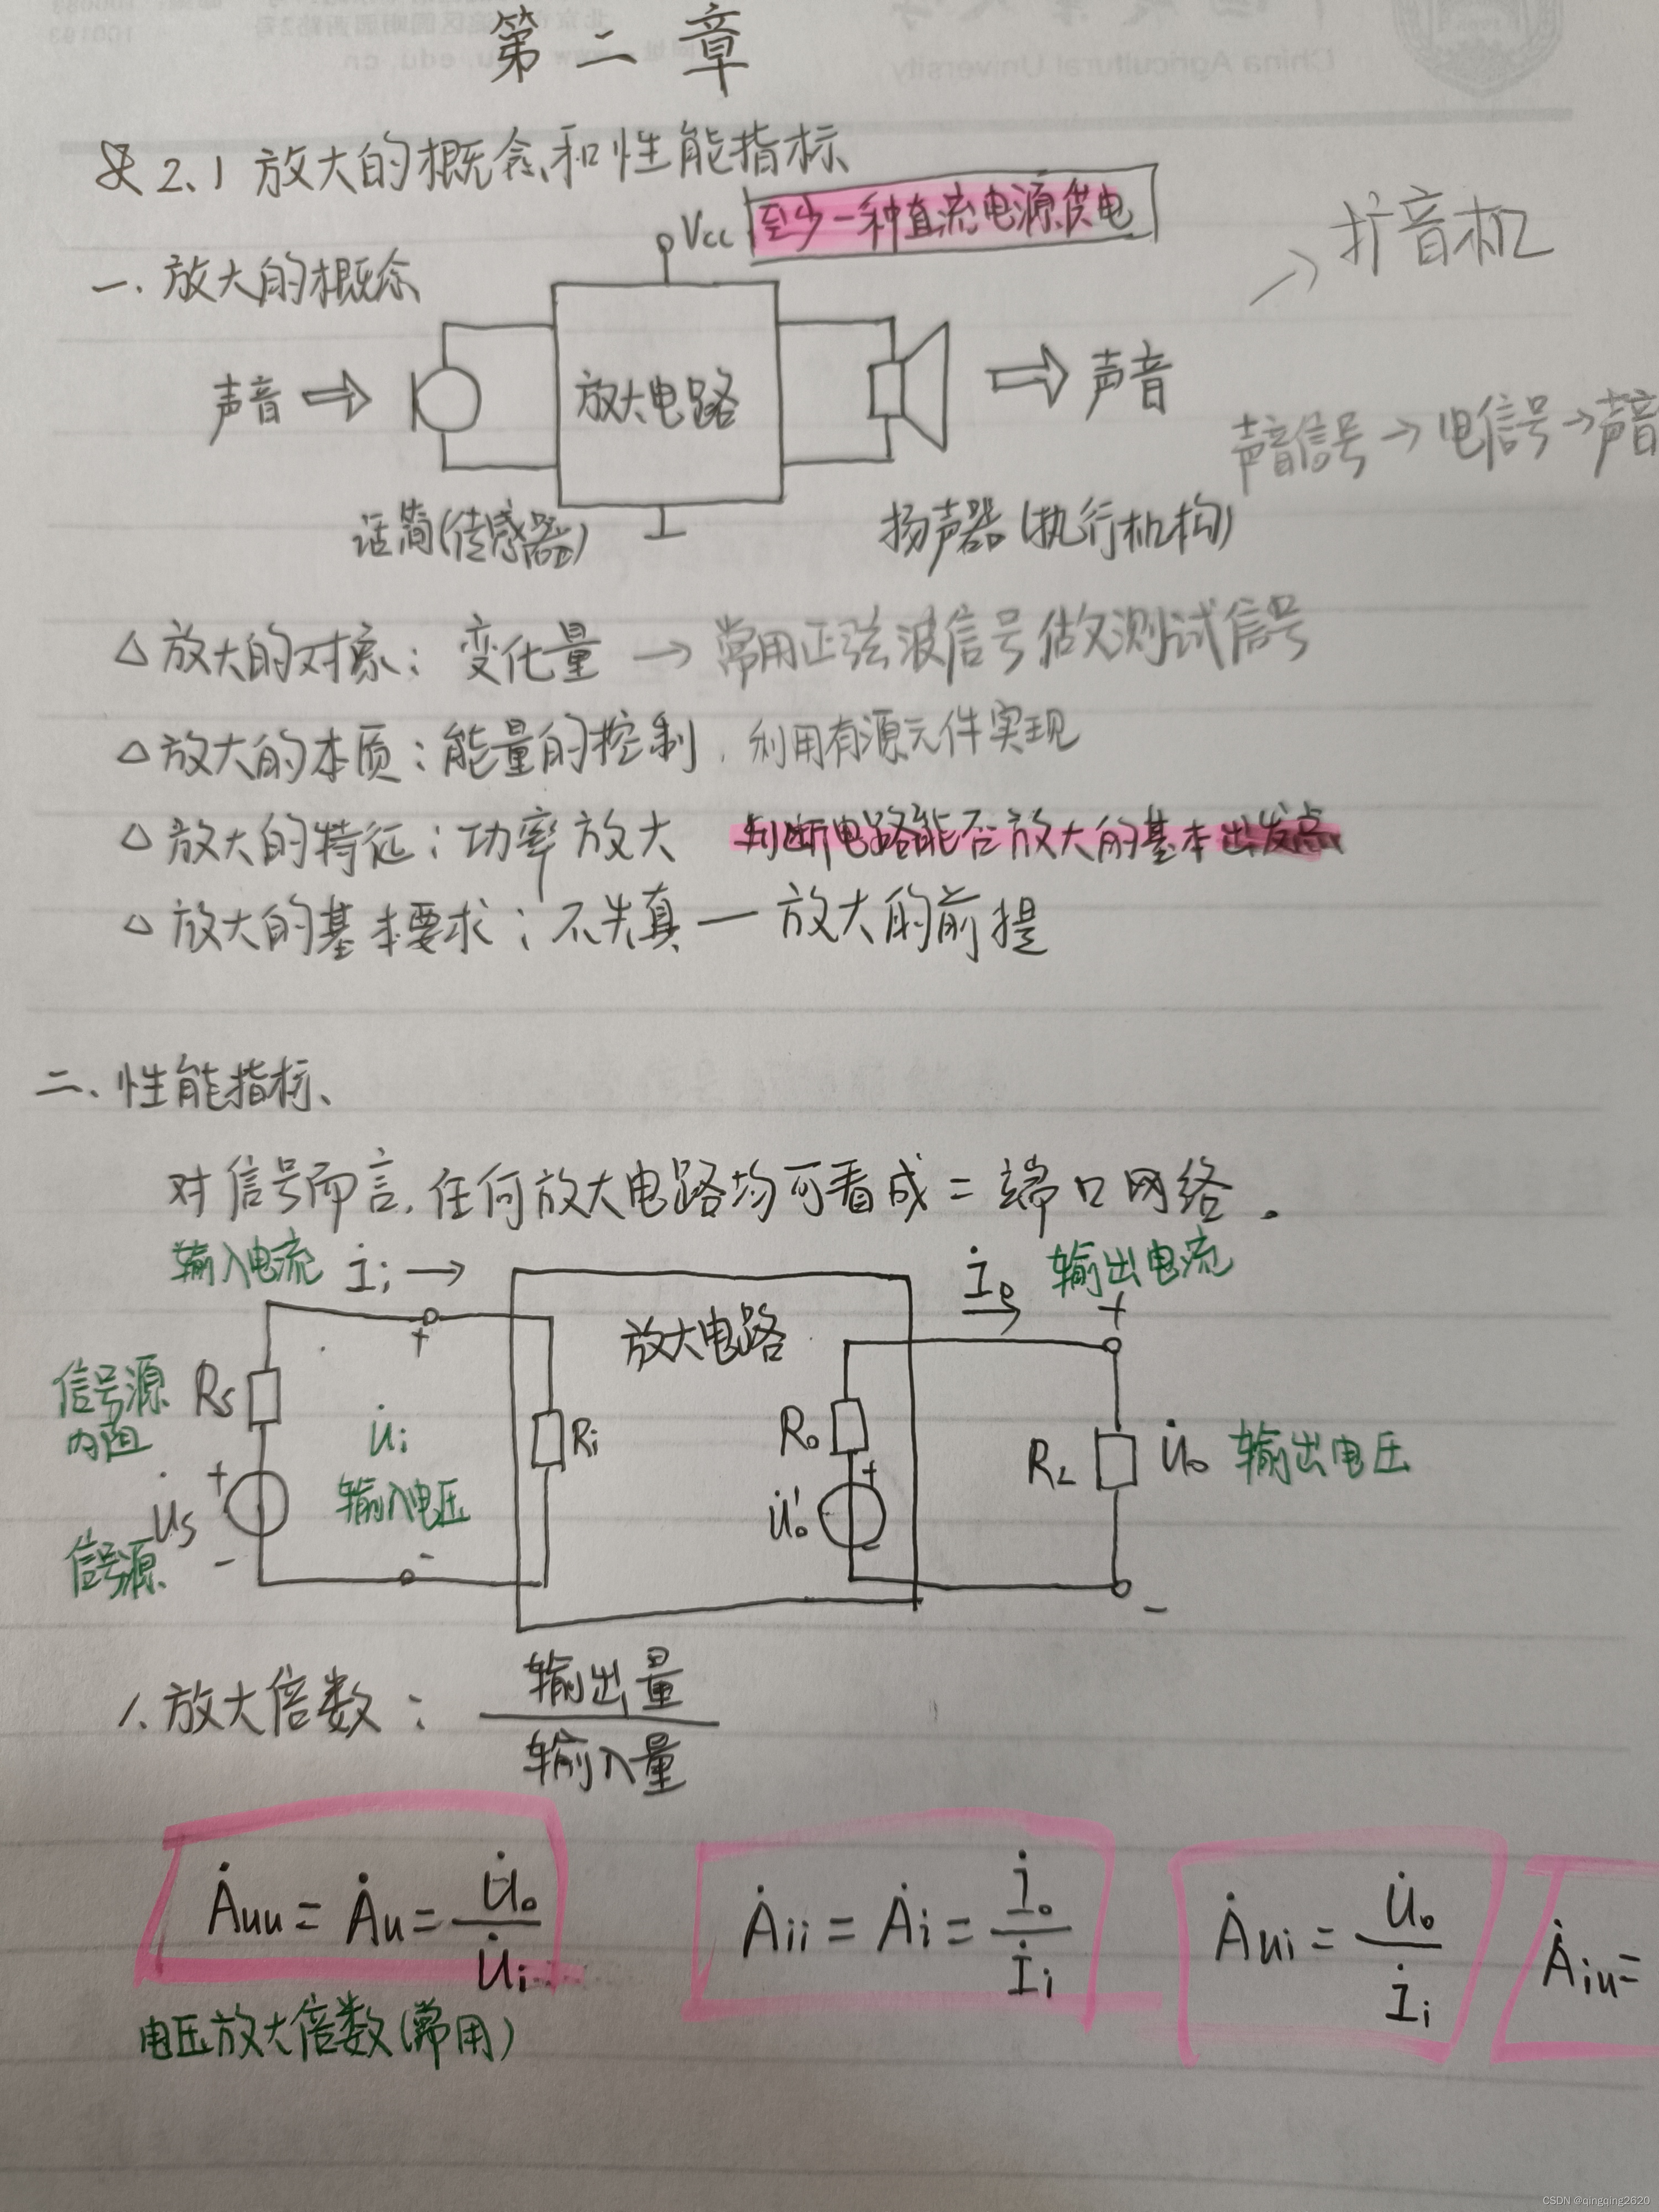 第二章
2.1 放大的概念和性能指标
Vcc 至少一种直流电源供电
扩音机
一. 放大的概念
声音
放大电路
声音
声音信号→电信号→声音
话筒(传感器)
扬声器(执行机构)
△放大的对象：变化量→常用正弦波信号做测试信号
△放大的本质：能量的控制，利用有源元件实现
△放大的特征：功率放大 判断电路能否放大的基本出发点
△放大的基本要求：不失真—放大的前提
二、性能指标、
对信号而言，任何放大电路均可看成二端口网络。
输入电流 İi →
İo 输出电流
放大电路
+
+
信号源内阻 Rs
U̇i
输入电压
Ri
Ro
RL
U̇o 输出电压
+
U̇s
信号源
-
-
+
U̇'o
-
-
1. 放大倍数：输出量/输入量
Ȧuu = Ȧu = U̇o/U̇i
Ȧii = Ȧi = İo/İi
Ȧui = U̇o/İi
Ȧiu =
电压放大倍数(常用)
CSDN @qingqing2620